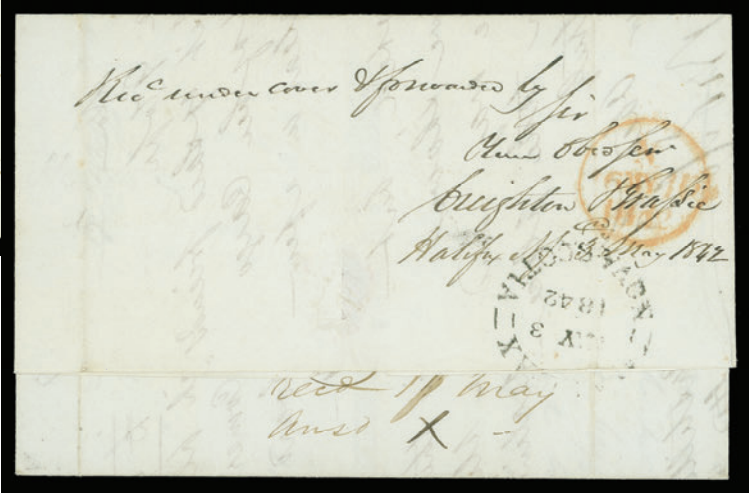 Recd under cover & forwarded by
Sir
Your Obed Serv
Creighton & Grassie
Halifax N.S. 3 May 1842
NOVA SCOTIA
MY 3
1842
1842
recd 18 May
Ansd X